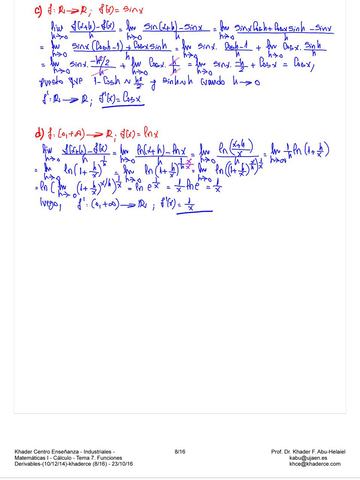 c) f: ℝ → ℝ ; f(x) = sin x
lim h→0 (f(x+h) - f(x))/h = lim h→0 (sin(x+h) - sin x)/h = lim h→0 (sin x Cosh + Cosx sinh - sin x)/h
= lim h→0 (sin x (Cosh - 1) + Cosx sinh)/h = lim h→0 sin x. (Cosh - 1)/h + lim h→0 Cosx. sinh/h
= lim h→0 sin x. (-h²/2)/h + lim h→0 Cosx. h/h = lim h→0 sin x. -h/2 + Cosx = Cosx,
puesto que 1 - Cosh ~ h²/2 y sinh ~ h cuando h → 0
f': ℝ → ℝ ; f'(x) = Cosx
d) f: (0, +∞) → ℝ ; f(x) = ln x
lim h→0 (f(x+h) - f(x))/h = lim h→0 (ln(x+h) - ln x)/h = lim h→0 ln((x+h)/x)/h = lim h→0 1/h ln(1 + h/x)
= lim h→0 ln(1 + h/x)^(1/h) = lim h→0 ln(1 + h/x)^(1/h · x/x) = lim h→0 ln((1 + h/x)^(x/h))^(1/x)
= ln [lim h→0 (1 + h/x)^(x/h)]^(1/x) = ln e^(1/x) = 1/x ln e = 1/x
luego, f': (0, +∞) → ℝ ; f'(x) = 1/x
Khader Centro Enseñanza - Industriales - 8/16 Prof. Dr. Khader F. Abu-Helaiel
Matemáticas I - Cálculo - Tema 7: Funciones kabu@ujaen.es
Derivables-(10/12/14)-khaderce (8/16) - 23/10/16 khce@khaderce.com